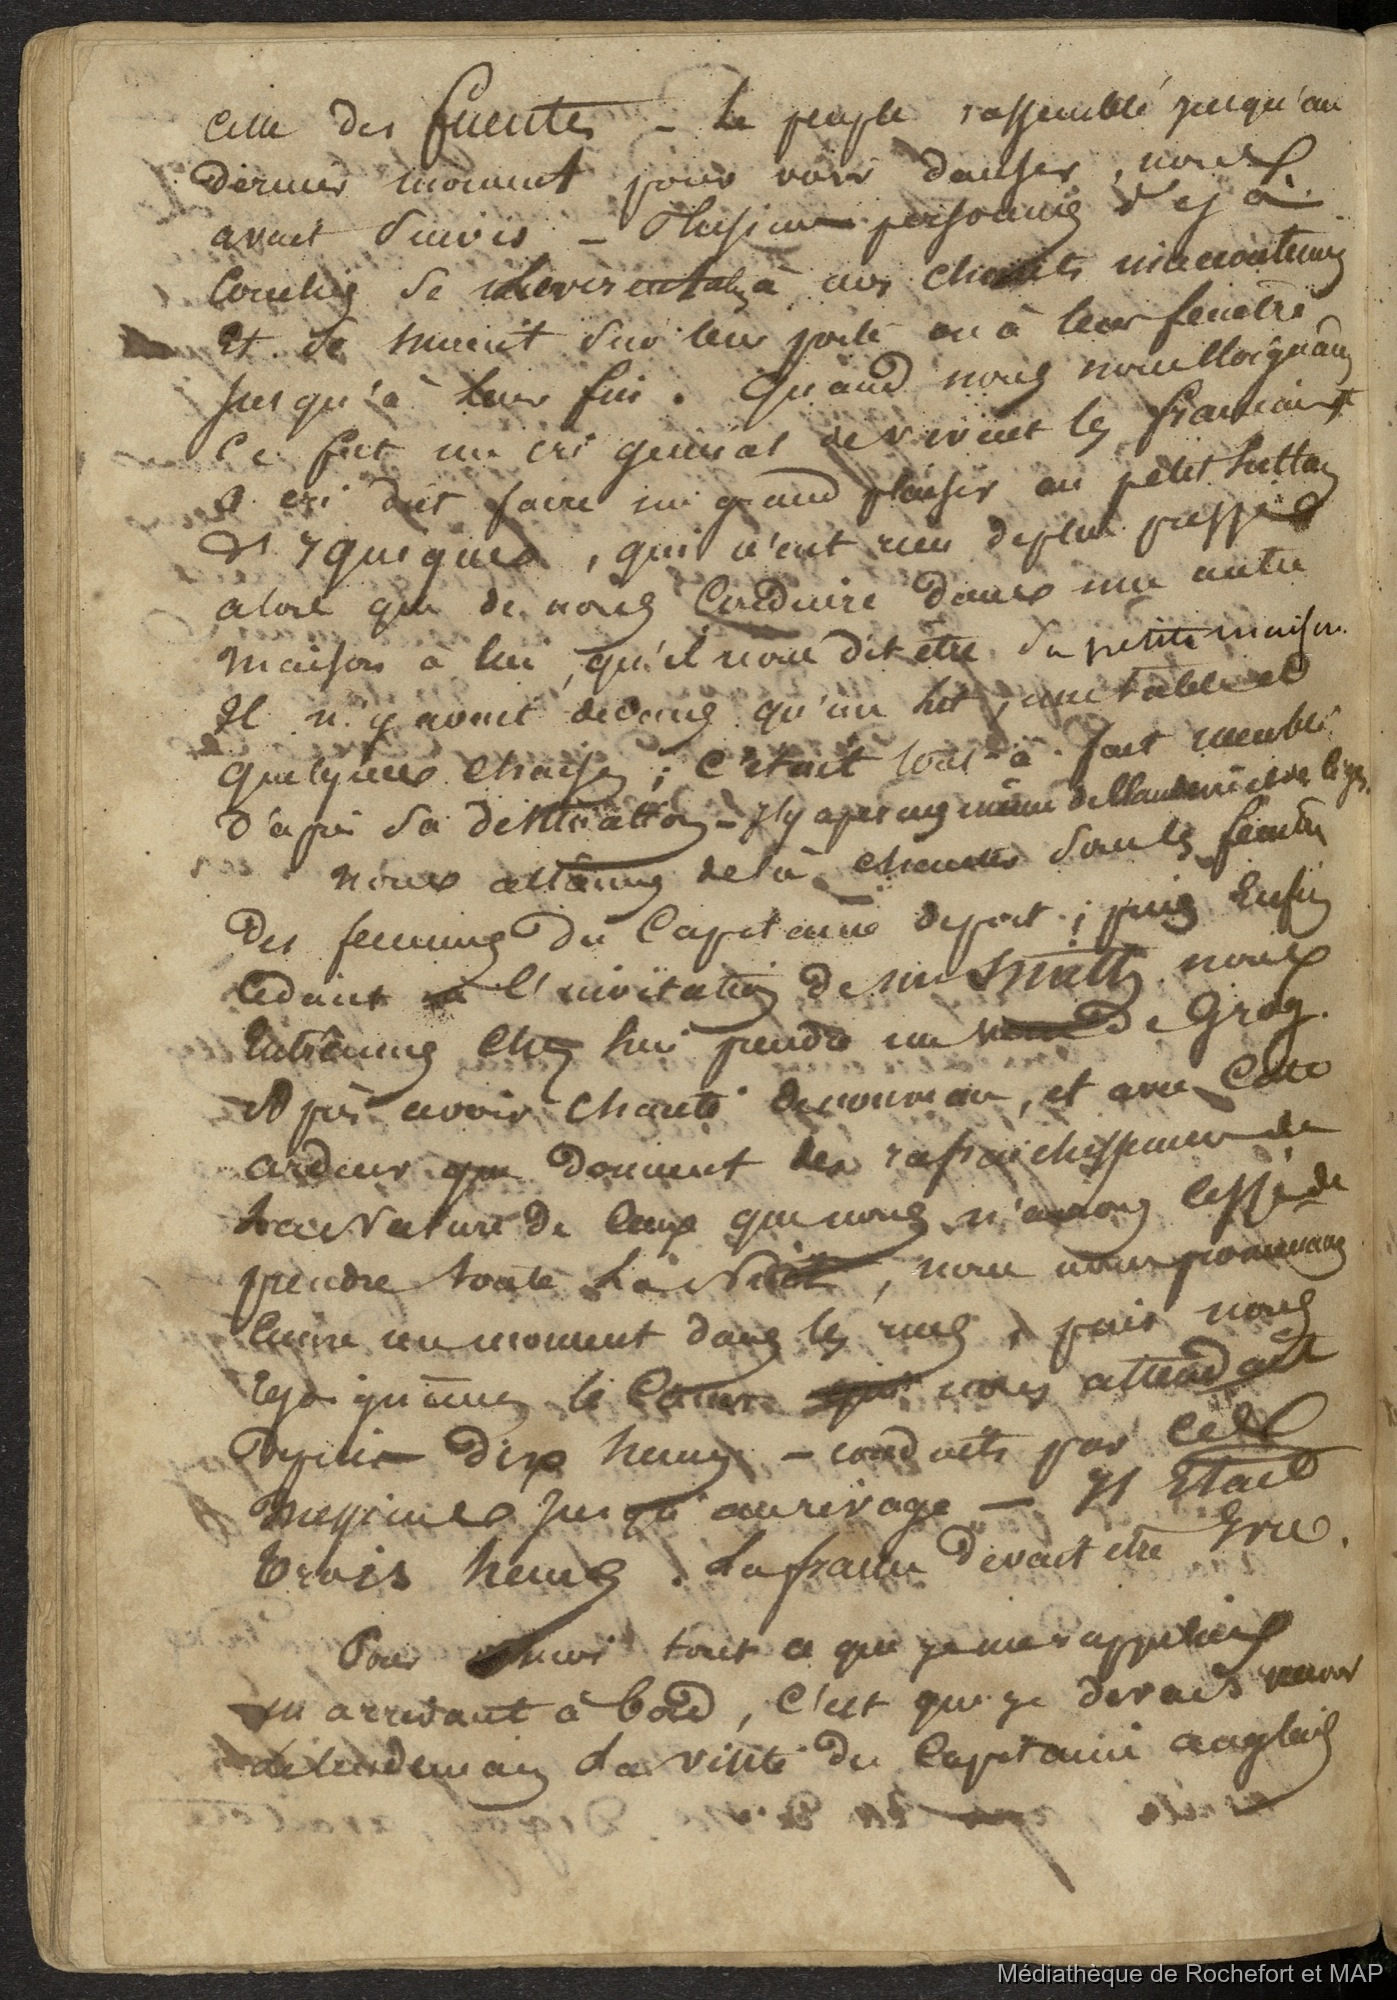 celle des fuentes – Le peuple rassemblé jusqu'au
dernier moment pour voir danser, nous
avait suivis – Plusieurs personnes déjà
Couchés se leverent à nos chants
Et se mirent sur leur porte ou à leur fenetre
jusqu'à leur fin. Quand nous nous éloignames
Ce fut un cri general de vivent les francais
ce cri dut faire un grand plaisir au petit sultan
d'Yquique, qui n'eut rien de plus pressé
alors que de nous Conduire dans une autre
maison à lui, qu'il nous dit etre sa petite maison.
Il n'y avait dedans qu'un lit, une table et
quelques chaises; c'était tout-à-fait meublé
d'après sa destination – il y a pas
Nous allames delà chanter sous les fenetres
Des femmes du Capitaine de port; puis Enfin
Cedant à l'invitation de mr Smith nous
Entrames chez lui prendre un verre de Grog.
Après avoir chanté de nouveau, et avec Cette
ardeur que donnent des rafraichissemens de
la nature de ceux que nous n'avions cessé de
prendre toute la Nuit, nous nous promenames
Encore un moment dans les rues, puis nous
rejoignimes le Canot qui nous attendait
Depuis Dix heures – conduits par ces
messieurs jusqu'au rivage – Il Etait
trois heures. La france devait etre Ivre.
Pour moi tout ce que je me rappelais
en arrivant à bord, C'est que je devais recevoir
le lendemain La visite du Capitaine anglais
Médiathèque de Rochefort et MAP